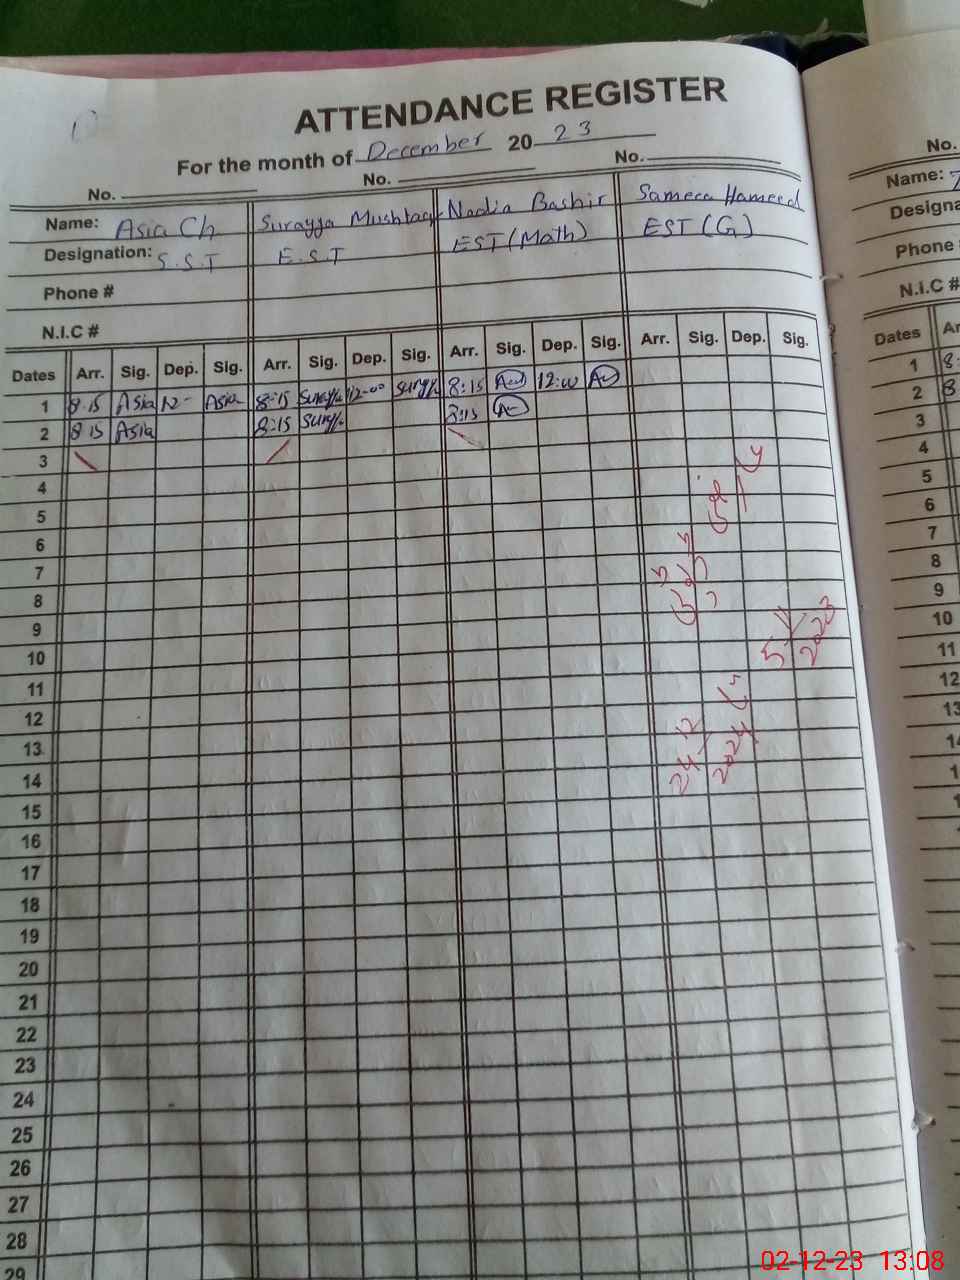 ATTENDANCE REGISTER
For the month of December 20 23
No. No. No.
Name: Asia Ch Surayya Mushtaq Nadia Bashir Sameea Hameed
Designation: S.S.T E.S.T EST (Math) EST (G)
Phone #
N.I.C #
Dates Arr. Sig. Dep. Sig. Arr. Sig. Dep. Sig. Arr. Sig. Dep. Sig. Arr. Sig. Dep. Sig.
1 8.15 Asia 12- Asia 8:15 Surayya 12:00 Surayya 8:15 12:00
2 8 15 Asia 8:15 Surayya 8:15
3
4
5
6
7
8
9
10
11
12
13
14
15
16
17
18
19
20
21
22
23
24
25
26
27
28
29
5
2023
24 12
2024
No.
Name:
Designa
Phone
N.I.C #
Dates Ar
1 8:
2 8
3
4
5
6
7
8
9
10
11
12
13
14
1
1
02-12-23 13:08